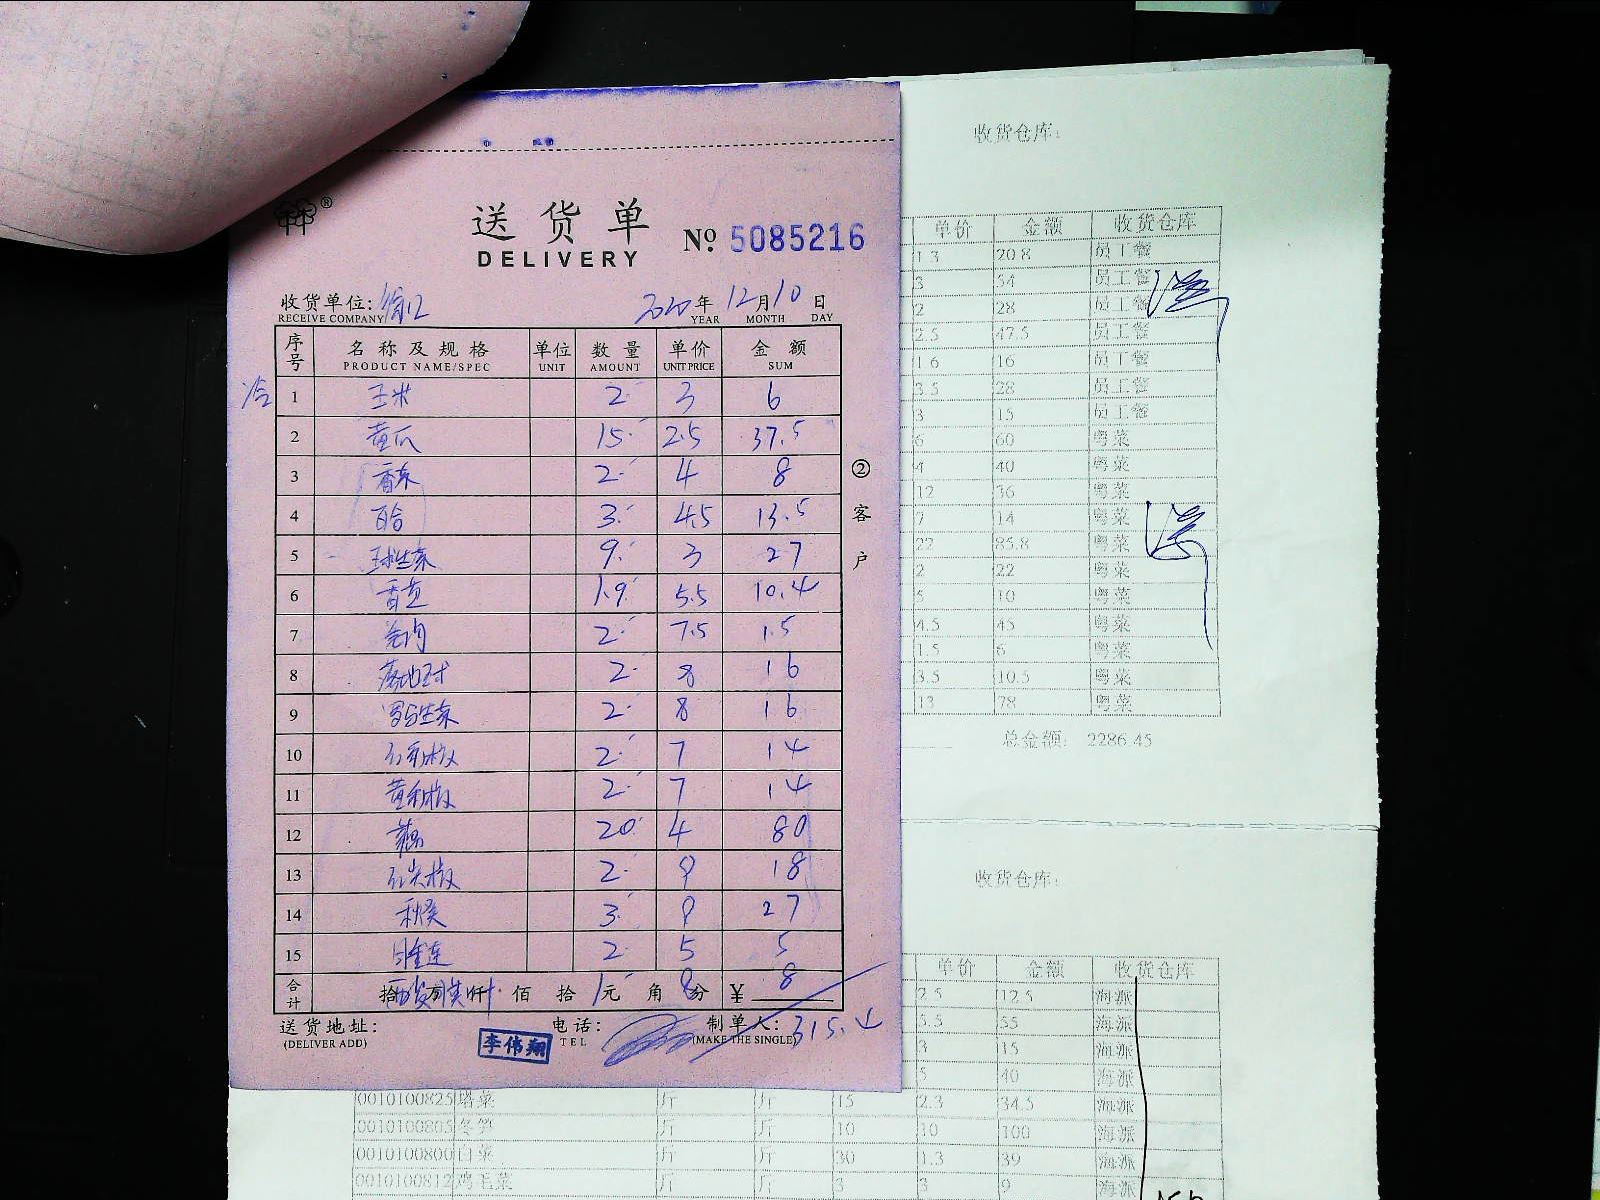 送货单
DELIVERY
№ 5085216
收货单位: 徐汇 2020年12月10日
RECEIVE COMPANY YEAR MONTH DAY
序号 名称及规格 单位 数量 单价 金额
PRODUCT NAME/SPEC UNIT AMOUNT UNIT PRICE SUM
冷 1 玉米 2 3 6
2 黄瓜 15 2.5 37.5
3 香菜 2 4 8
4 3 4.5 13.5
5 球生菜 9 3 27
6 1.9 5.5 10.4
7 2 7.5 1.5
8 2 8 16
9 罗马生菜 2 8 16
10 红彩椒 2 7 14
11 黄彩椒 2 7 14
12 20 4 80
13 红尖椒 2 9 18
14 秋葵 3 9 27
15 2 5 5
合计 拾 万 仟 佰 拾 元 角 分 ¥
1 8 8
送货地址: 电话: 制单人: 315.4
(DELIVER ADD) TEL (MAKE THE SINGLE)
李伟翔
② 客户
收货仓库:
单价 金额 收货仓库
1.3 20.8 员工餐
3 54 员工餐
2 28 员工餐
2.5 47.5 员工餐
1.6 16 员工餐
3.5 28 员工餐
3 15 员工餐
6 60 粤菜
4 40 粤菜
12 36 粤菜
7 14 粤菜
22 85.8 粤菜
2 22 粤菜
5 10 粤菜
4.5 45 粤菜
1.5 6 粤菜
3.5 10.5 粤菜
13 78 粤菜
总金额: 2286.45
收货仓库:
单价 金额 收货仓库
2.5 12.5 海派
5.5 55 海派
3 15 海派
5 40 海派
0010100825 塔菜 斤 斤 15 2.3 34.5 海派
0010100805 冬笋 斤 斤 10 10 100 海派
0010100800 白菜 斤 斤 30 1.3 39 海派
0010100812 鸡毛菜 斤 斤 3 3 9 海派